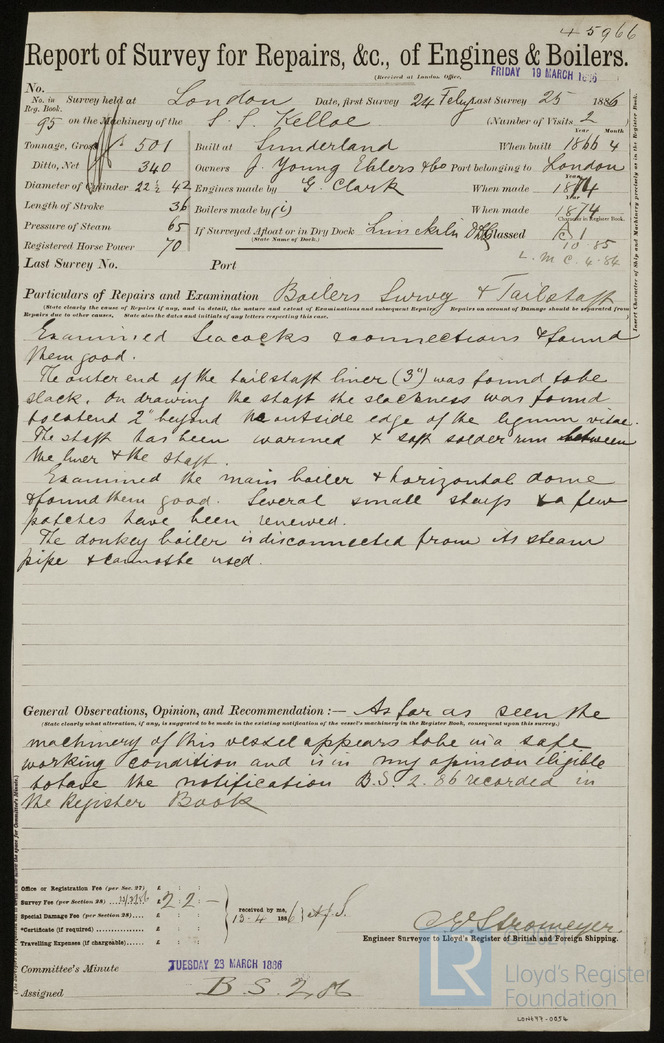 45966
Report of Survey for Repairs, &c., of Engines & Boilers.
(Received at London Office, FRIDAY 19 MARCH 1886
No.
No. in Reg. Book. Survey held at London Date, first Survey 24 Feby Last Survey 25 1886
95 on the Machinery of the S. S. Kelloe (Number of Visits 2)
Tonnage, Gross 501 Built at Sunderland When built 1866 4
Ditto, Net 340 Owners J. Young Ehlers & Co Port belonging to London
Diameter of Cylinder 22½ 42 Engines made by G Clark When made 1874
Length of Stroke 36 Boilers made by (i) When made 1874
Pressure of Steam 65 If Surveyed Afloat or in Dry Dock Classed A 1
Character in Register Book.
(State Name of Dock.)
10.85
Registered Horse Power 70
L. M C. 4.84
Last Survey No. Port
Particulars of Repairs and Examination Boilers Survey & Tailshaft
(State clearly the cause of Repairs if any, and in detail, the nature and extent of Examinations and subsequent Repairs. Repairs on account of Damage should be separated from
Repairs due to other causes, State also the dates and initials of any letters respecting this case.
Insert Character of Ship and Machinery precisely as in the Register Book.
Examined Seacocks & connections & found
them good.
The outer end of the tailshaft liner (3") was found to be
slack. On drawing the shaft the slackness was found
to extend 2" beyond the outside edge of the lignum vitae.
The shaft has been warmed & soft solder run between
the liner & the shaft.
Examined the main boiler & horizontal dome
& found them good. Several small stays & a few
patches have been renewed.
The donkey boiler is disconnected from its steam
pipe & cannot be used.
General Observations, Opinion, and Recommendation :— As far as seen the
(State clearly what alteration, if any, is suggested to be made in the existing notification of the vessel's machinery in the Register Book, consequent upon this survey.)
machinery of this vessel appears to be in a safe
working condition and is in my opinion eligible
to have the notification B.S. 2.86 recorded in
the Register Book
Office or Registration Fee (per Sec. 27) £ : :
Survey Fee (per Section 28) £ 2 : 2 : —
Special Damage Fee (per Section 28) £ : :
*Certificate (if required) £ : :
Travelling Expenses (if chargeable) £ : :
received by me,
13-4-1886
C. E. Stromeyer.
Engineer Surveyor to Lloyd's Register of British and Foreign Shipping.
Committee's Minute TUESDAY 23 MARCH 1886
Assigned B S 2 86
LR
© 2021
Lloyd's Register
Foundation
LON677-0054